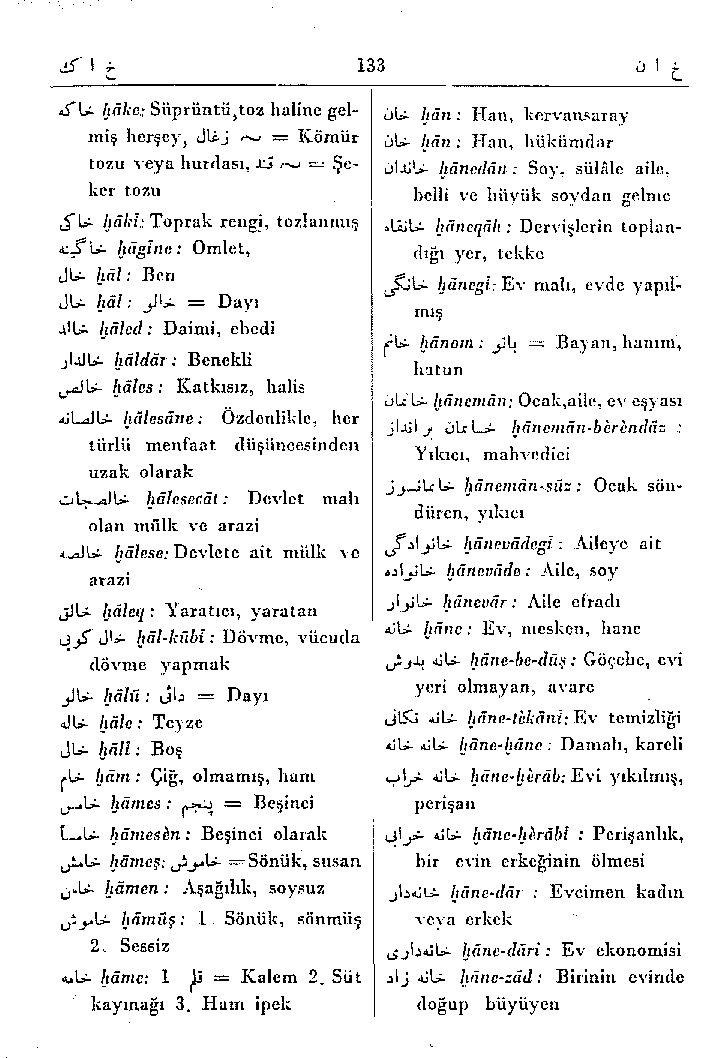 خ ا ك 133 خ ا ن
خاكه ḫāke: Süprüntü,toz haline gel-
miş herşey, زغال ~ = Kömür
tozu veya hurdası, قند ~ = Şe-
ker tozu
خاكى ḫākî: Toprak rengi, tozlanmış
خاگينه ḫāgîne: Omlet,
خال ḫāl: Ben
خال ḫāl: خالو = Dayı
خالد ḫāled: Daimi, ebedi
خالدار ḫāldār: Benekli
خالص ḫāles: Katkısız, halis
خالصانه ḫālesāne: Özdenlikle, her
türlü menfaat düşüncesinden
uzak olarak
خالصجات ḫālesecāt: Devlet malı
olan mülk ve arazi
خالصه ḫālese: Devlete ait mülk ve
arazi
خالق ḫāleq: Yaratıcı, yaratan
خال كوبى ḫāl-kûbî: Dövme, vücuda
dövme yapmak
خالو ḫālû: دائى = Dayı
خاله ḫāle: Teyze
خالى ḫālî: Boş
خام ḫām: Çiğ, olmamış, ham
خامس ḫāmes: پنجم = Beşinci
خامساً ḫāmesèn: Beşinci olarak
خامش ḫāmeş: خاموش = Sönük, susan
خامن ḫāmen: Aşağılık, soysuz
خاموش ḫāmûş: 1. Sönük, sönmüş
2. Sessiz
خامه ḫāme: 1 قلم = Kalem 2. Süt
kaymağı 3. Ham ipek
خان ḫān: Han, kervansaray
خان ḫān: Han, hükümdar
خاندان ḫānedān: Soy, sülâle aile,
belli ve büyük soydan gelme
خانقاه ḫāneqāh: Dervişlerin toplan-
dığı yer, tekke
خانگى ḫānegî: Ev malı, evde yapıl-
mış
خانم ḫānom: بانو = Bayan, hanım,
hatun
خانمان ḫānemān: Ocak,aile, ev eşyası
خانمان برانداز ḫānemān-bèrèndāz :
Yıkıcı, mahvedici
خانمانسوز ḫānemān-sûz: Ocak sön-
düren, yıkıcı
خانوادگى ḫānevādegî: Aileye ait
خانواده ḫānevāde: Aile, soy
خانوار ḫānevār: Aile efradı
خانه ḫāne: Ev, mesken, hane
خانه بدوش ḫāne-be-dûş: Göçebe, evi
yeri olmayan, avare
خانه تكانى ḫāne-tèkānî: Ev temizliği
خانه خانه ḫāne-ḫāne: Damalı, kareli
خانه خراب ḫāne-ḫèrāb: Evi yıkılmış,
perişan
خانه خرابى ḫāne-ḫèrābî : Perişanlık,
bir evin erkeğinin ölmesi
خانه‌دار ḫāne-dār : Evcimen kadın
veya erkek
خانه‌دارى ḫāne-dāri: Ev ekonomisi
خانه زاد ḫāne-zād: Birinin evinde
doğup büyüyen